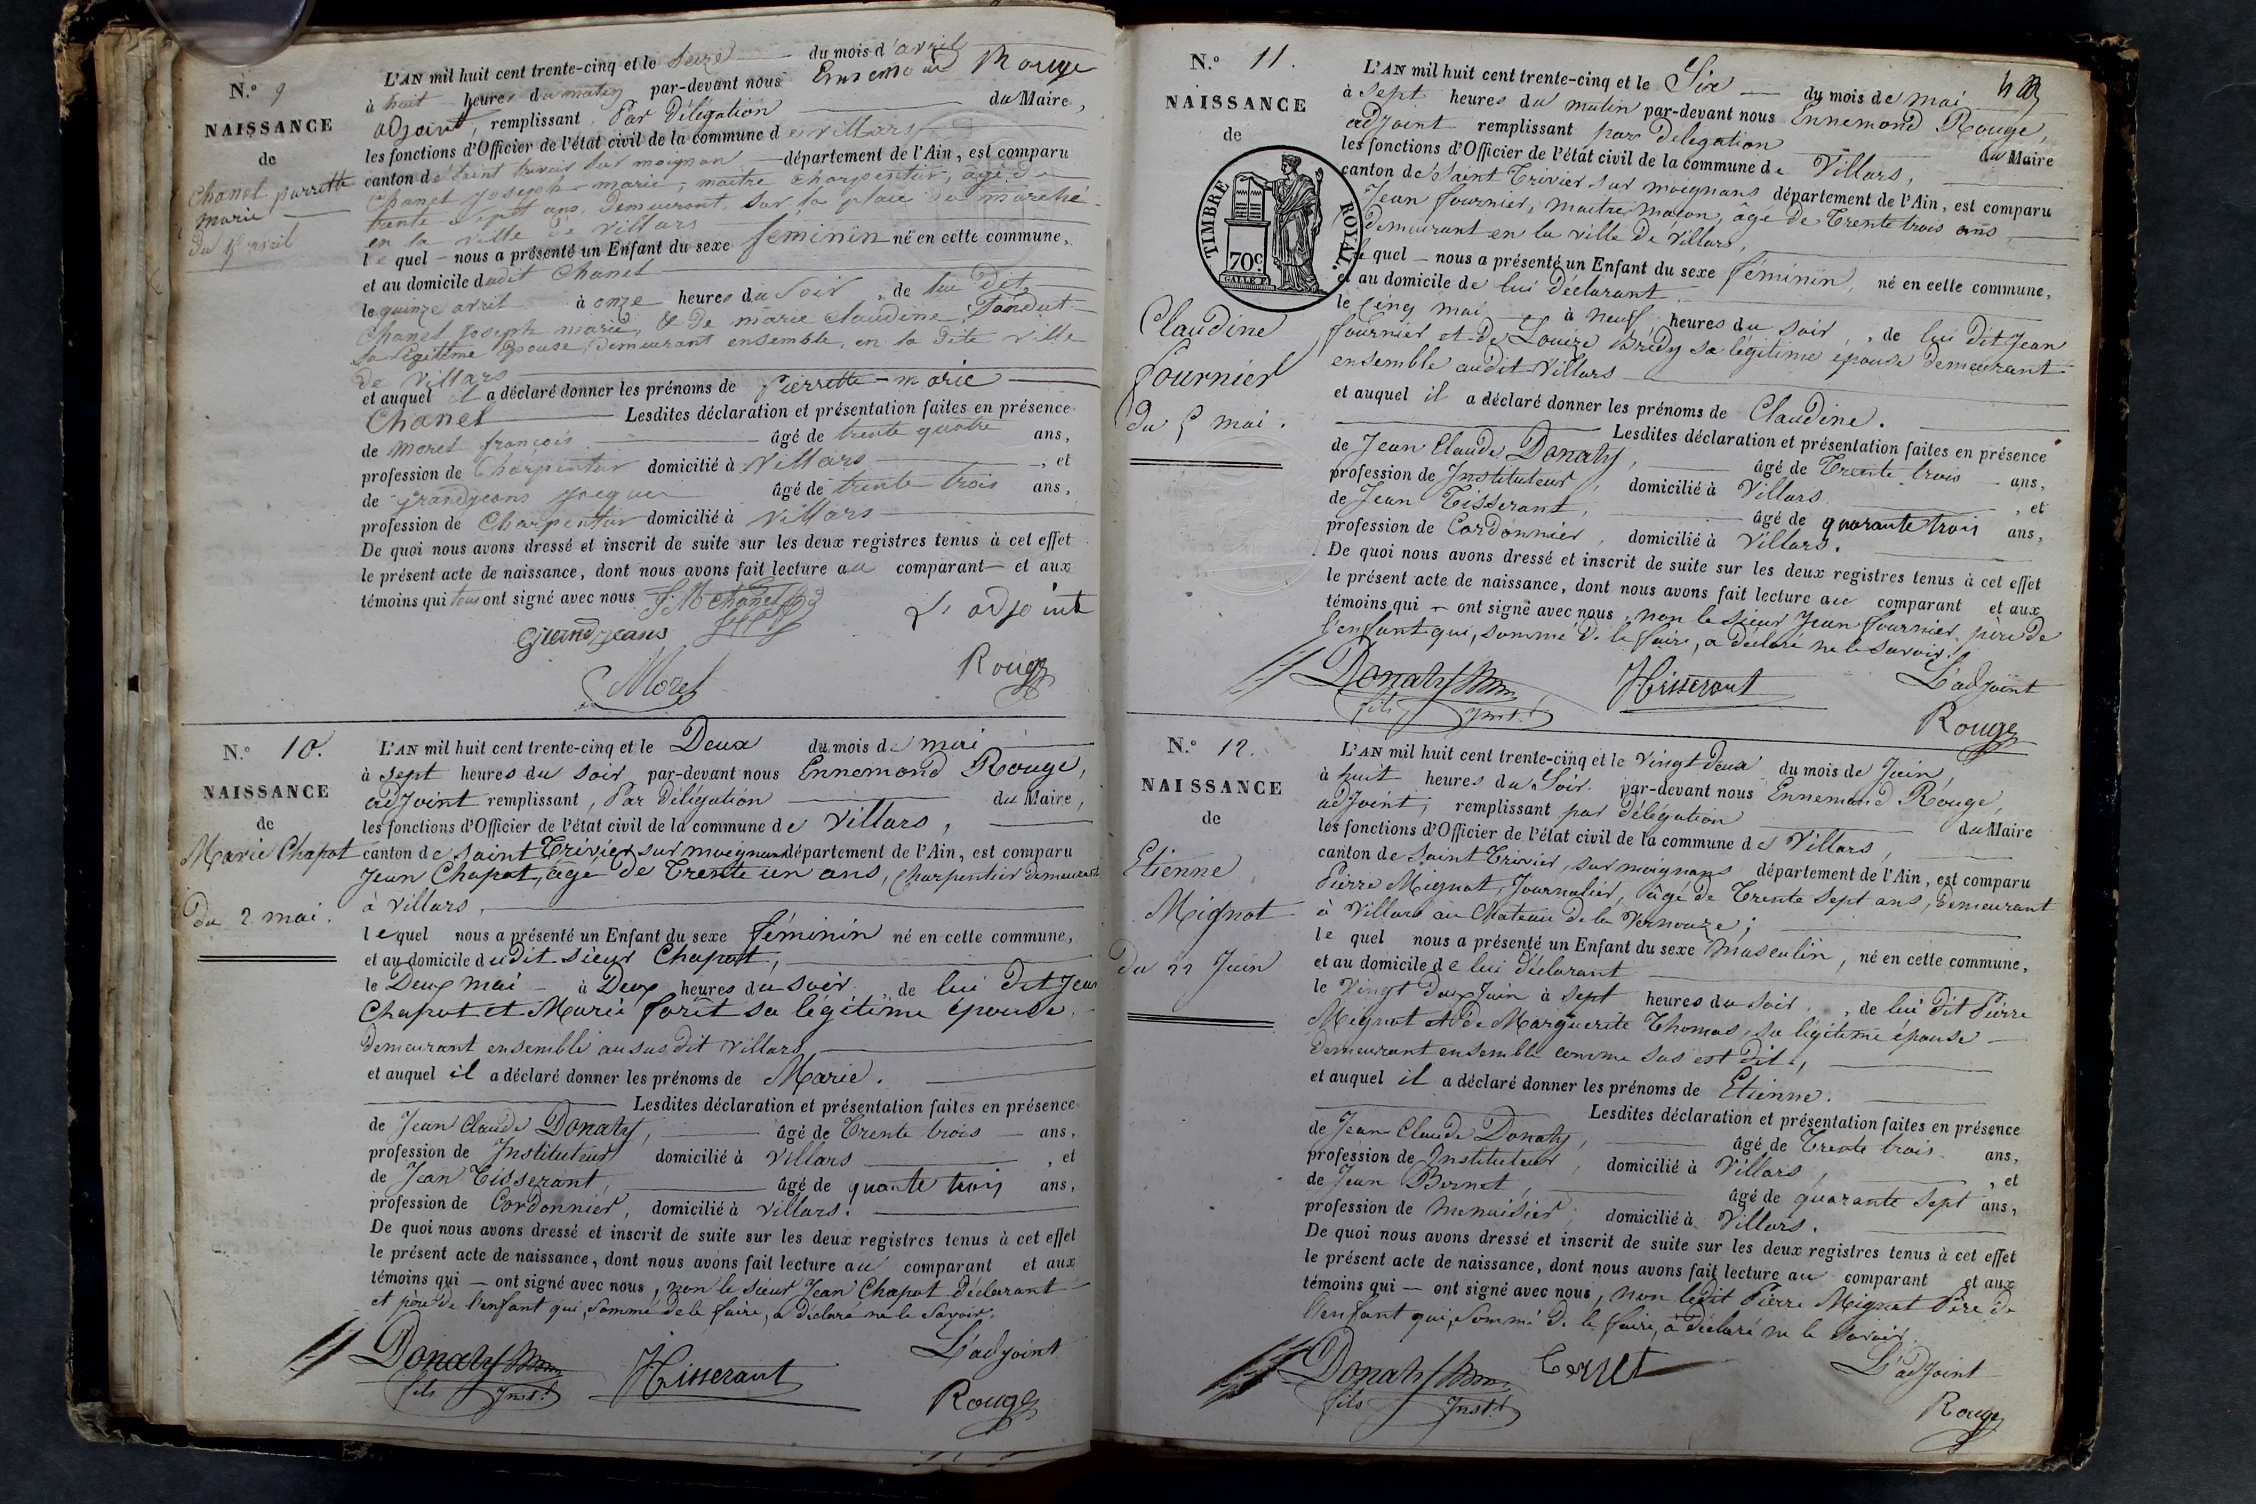 N.° 9
NAISSANCE
de
Chanel pierrette
marie
du 15 avril
L'AN mil huit cent trente-cinq et le seize du mois d'avril
à huit heures du matin par-devant nous Ennemond Rouge
adjoint, remplissant Par Délégation du Maire,
les fonctions d'Officier de l'état civil de la commune de villars
canton de saint trivier sur moignan département de l'Ain, est comparu
Chanel Joseph-marie, maitre charpentier, agé de
trente sept ans, demeurant sur la place du marché
en la ville de villars
lequel nous a présenté un Enfant du sexe féminin né en cette commune,
et au domicile dudit Chanel
le quinze avril à onze heures du soir, de lui dit
Chanel Joseph marie, & de marie claudine
sa légitime épouse, demeurant ensemble, en la dite ville
de villars
et auquel il a déclaré donner les prénoms de Pierrette-marie
Chanel Lesdites déclaration et présentation faites en présence
de Morel françois âgé de trente quatre ans,
profession de Charpentier domicilié à Villars, et
de Grandjeans Jacques âgé de trente trois ans,
profession de Charpentier domicilié à Villars
De quoi nous avons dressé et inscrit de suite sur les deux registres tenus à cet effet
le présent acte de naissance, dont nous avons fait lecture au comparant et aux
témoins qui tous ont signé avec nous J M Chanel
Grandjeans L'adjoint
Morel Rouge
N.° 10.
NAISSANCE
de
Marie Chapot
Du 2 mai.
L'AN mil huit cent trente-cinq et le Deux du mois de mai
à sept heures du soir par-devant nous Ennemond Rouge,
adjoint remplissant, Par Délégation du Maire,
les fonctions d'Officier de l'état civil de la commune de Villars,
canton de saint Trivier sur moignans département de l'Ain, est comparu
Jean Chapot, âgé de Trente un ans, Charpentier demeurant
à Villars,
lequel nous a présenté un Enfant du sexe féminin né en cette commune,
et au domicile dudit sieur Chapot,
le Deux mai à Deux heures du soir, de lui dit Jean
Chapot et Marie forêt sa légitime épouse,
demeurant ensemble au sus dit Villars
et auquel il a déclaré donner les prénoms de Marie.
Lesdites déclaration et présentation faites en présence
de Jean Claude Donaty, âgé de Trente trois ans,
profession de Instituteur domicilié à Villars, et
de Jean Tisserant, âgé de quante trois ans,
profession de Cordonnier, domicilié à Villars.
De quoi nous avons dressé et inscrit de suite sur les deux registres tenus à cet effet
le présent acte de naissance, dont nous avons fait lecture au comparant et aux
témoins qui ont signé avec nous, non le sieur Jean Chapot déclarant
et père de l'enfant qui, sommé de le faire, a déclaré ne le savoir.
Donaty L'adjoint
fils Inst.r JTisserant Rouge
N.° 11.
NAISSANCE
de
TIMBRE ROYAL.
70c
Claudine
fournier
du 5 mai.
L'AN mil huit cent trente-cinq et le Six du mois de mai
à sept heures du matin par-devant nous Ennemond Rouge,
adjoint remplissant par Délégation du Maire
les fonctions d'Officier de l'état civil de la commune de Villars,
canton de Saint Trivier sur moignans département de l'Ain, est comparu
Jean fournier, maitre maçon, âgé de Trente trois ans
demeurant en la ville de Villars,
lequel nous a présenté un Enfant du sexe féminin, né en cette commune,
et au domicile de lui déclarant
le Cinq mai à neuf heures du soir, de lui dit Jean
fournier et de Louize Brédy sa légitime épouse demeurant
ensemble audit Villars
et auquel il a déclaré donner les prénoms de Claudine.
Lesdites déclaration et présentation faites en présence
de Jean Claude Donaty, âgé de Trente trois ans,
profession de Instituteur, domicilié à Villars, et
de Jean Tisserant, âgé de quarante trois ans,
profession de Cordonnier, domicilié à Villars.
De quoi nous avons dressé et inscrit de suite sur les deux registres tenus à cet effet
le présent acte de naissance, dont nous avons fait lecture au comparant et aux
témoins qui ont signé avec nous, non le sieur Jean fournier père de
l'enfant qui, sommé de le faire, a déclaré ne le savoir.
Donaty JTisserant L'adjoint
fils Inst.r Rouge
N.° 12.
NAISSANCE
de
Etienne
Mignot
Du 22 Juin
L'AN mil huit cent trente-cinq et le vingt deux du mois de Juin,
à huit heures du Soir par-devant nous Ennemond Rouge,
adjoint, remplissant par délégation du Maire
les fonctions d'Officier de l'état civil de la commune de Villars,
canton de Saint Trivier, sur moignans département de l'Ain, est comparu
Pierre Mignot, Journalier, âgé de Trente sept ans, demeurant
à Villars au Chateau de la Vernouze;
lequel nous a présenté un Enfant du sexe masculin, né en cette commune,
et au domicile de lui déclarant
le Vingt deux Juin à sept heures du soir, de lui dit Pierre
Mignot et de Marguerite Thomas, sa légitime épouse
demeurant ensemble comme sus est dit,
et auquel il a déclaré donner les prénoms de Etienne.
Lesdites déclaration et présentation faites en présence
de Jean Claude Donaty, âgé de Trente trois ans,
profession de Instituteur, domicilié à Villars, et
de Jean Bernet, âgé de quarante sept ans,
profession de menuisier, domicilié à Villars.
De quoi nous avons dressé et inscrit de suite sur les deux registres tenus à cet effet
le présent acte de naissance, dont nous avons fait lecture au comparant et aux
témoins qui ont signé avec nous, non ledit Pierre Mignot Père de
l'enfant qui, sommé de le faire, a déclaré ne le savoir.
Donaty L'adjoint
fils Inst.r Rouge